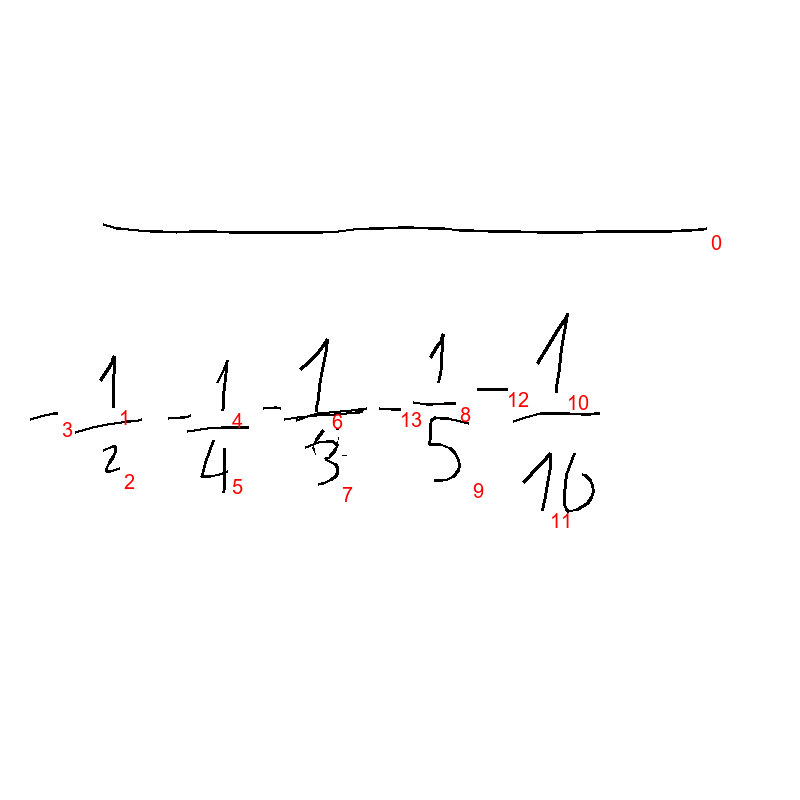 0
- 1/2 - 1/4 - 1/3 - 1/5 - 1/16
3 1 2 4 5 6 7 13 8 9 12 10 11